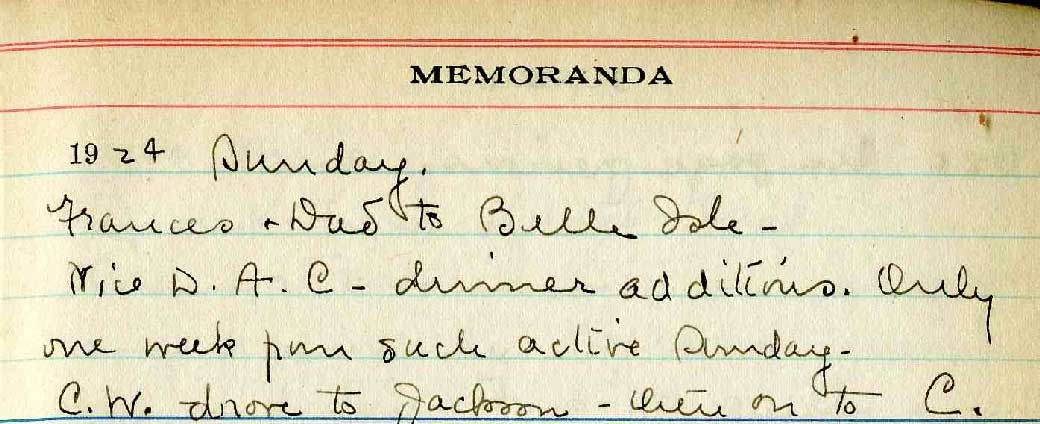 MEMORANDA
1924 Sunday.
Frances + Dad to Belle Isle -
Nice D. A. C - dinner additions. Only
one week such active Sunday -
C. W. drove to Jackson - then on to C.